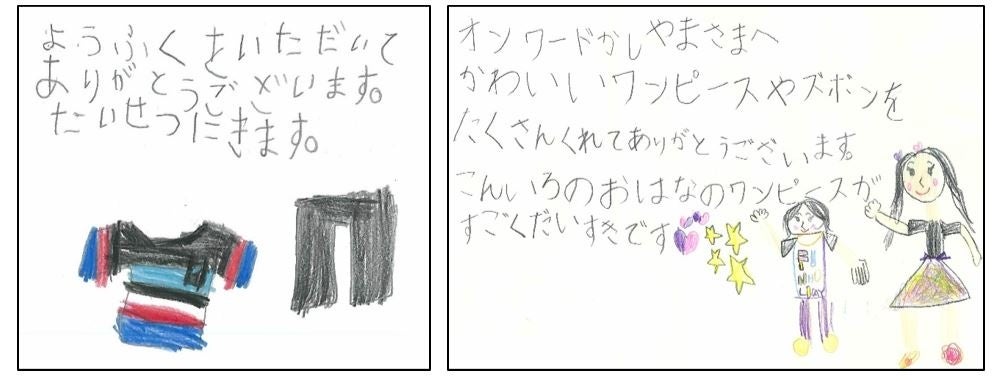 ようふくをいただいて
ありがとうございます。
たいせつにきます。
オンワードかしやまさまへ
かわいいワンピースやズボンを
たくさんくれてありがとうございます。
こんいろのおはなのワンピースが
すごくだいすきです